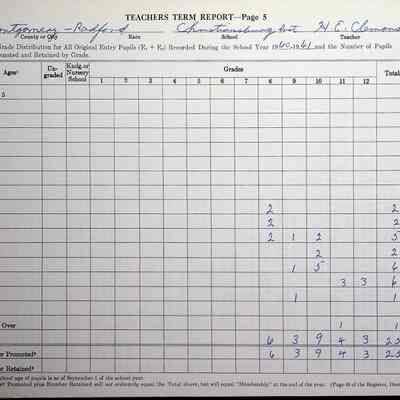 TEACHERS TERM REPORT—Page 5
Montgomery - Radford Christiansburg Inst H E Clemons
County or City Race School Teacher
Grade Distribution for All Original Entry Pupils (E₁ + E₂) Recorded During the School Year 1960-1961 and the Number of Pupils
Promoted and Retained by Grade.
Ages¹ Un-graded Kndg. or Nursery School Grades Total
1 2 3 4 5 6 7 8 9 10 11 12
5
2 2
2 2
2 1 2 5
2 2
1 5 6
3 3 6
1 1
Over 1 1
6 3 9 4 3 25
Promoted² 6 3 9 4 3 25
Retained²
age of pupils is as of September 1 of the school year.
Promoted plus Number Retained will not ordinarily equal the Total above, but will equal "Membership" at the end of the year.